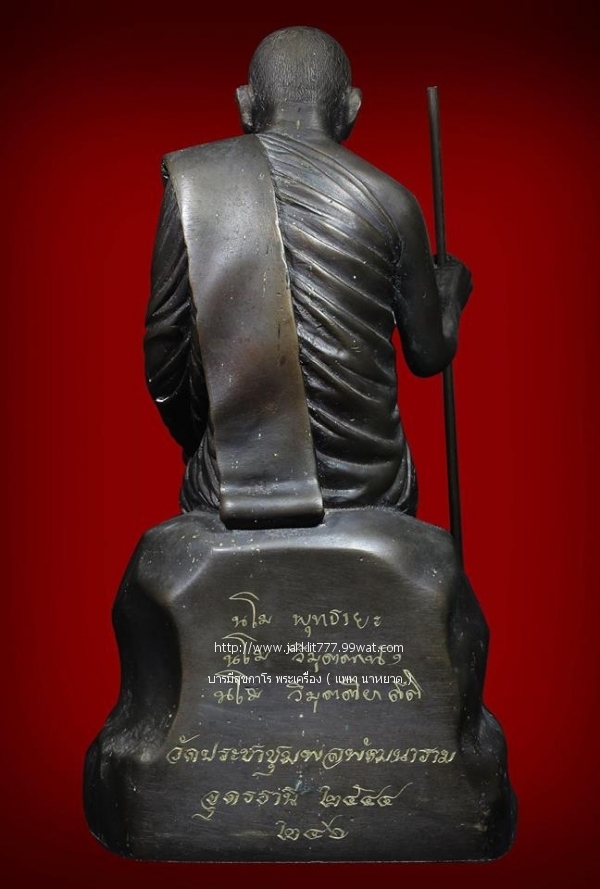 นโม พุทธายะ
http://www.jahklit777.99wat.com
นโม วิมุตตานํ
บารมีสุขกาโร พระเครื่อง ( แพท นาหยาด )
นโม วิมุตติยา
วัดประชาชุมพลพัฒนาราม
อุดรธานี ๒๕๔๔